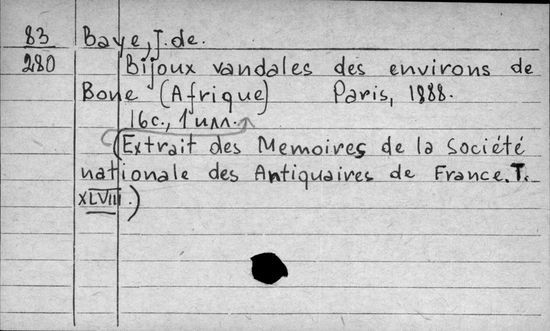 83 Baye, J. de.
280 Bijoux vandales des environs de
Bone (Afrique) Paris, 1888.
16с., 1 илл.
(Extrait des Memoires de la Société
nationale des Antiquaires de France. T.
XLVIII.)